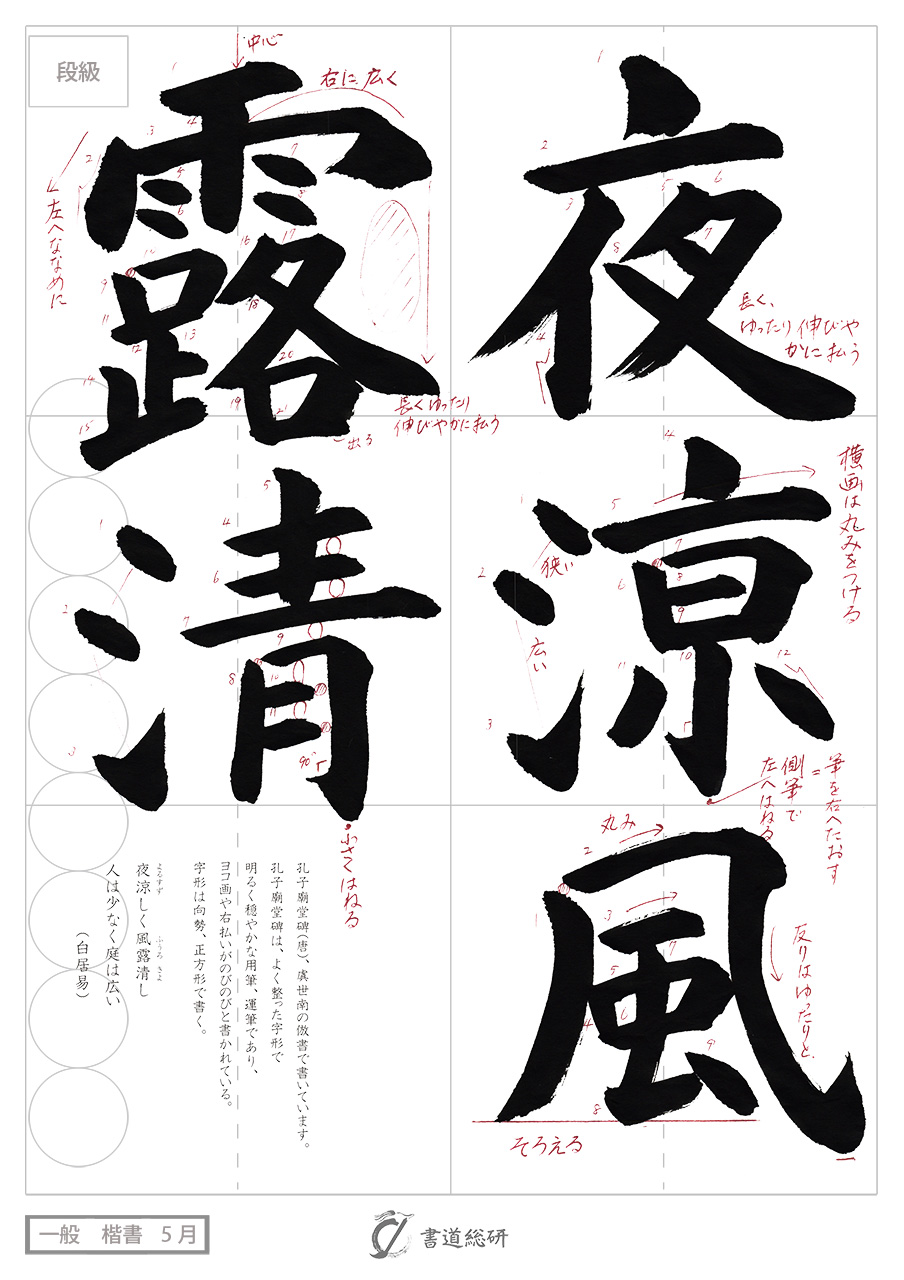 段級
夜
涼
風
露
清
中心
右に広く
左へななめに
長くゆったり
伸びやかに払う
出る
長く、
ゆったり伸びや
かに払う
横画は丸みをつける
狭い
広い
筆を右へたおす
=
側筆で
左へはねる
丸み
反りはゆったりと
そろえる
90°
小さくはねる
孔子廟堂碑(唐)、虞世南の倣書で書いています。
孔子廟堂碑は、よく整った字形で
明るく穏やかな用筆、運筆であり、
ヨコ画や右払いがのびのびと書かれている。
字形は向勢、正方形で書く。
よるすず ふうろ きよ
夜涼しく風露清し
人は少なく庭は広い
(白居易)
一般 楷書 5月
書道総研